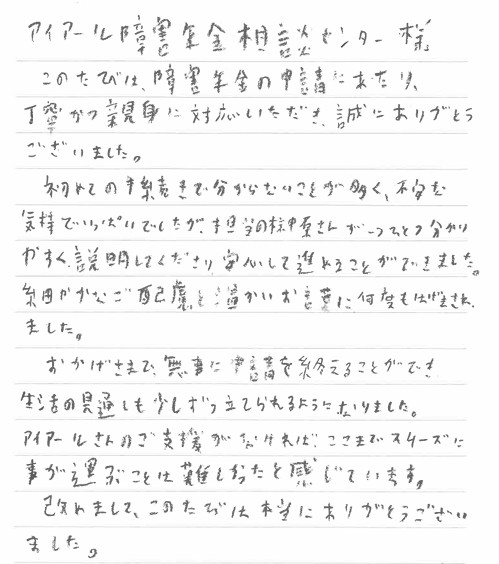 アイアール障害年金相談センター様
このたびは、障害年金の申請にあたり、
丁寧かつ親身に対応いただき、誠にありがとう
ございました。
初めての手続きで分からないことが多く、不安な
気持でいっぱいでしたが、担当の柿原さんが一つひとつ分かり
やすく説明してくださり安心して進めることができました。
細やかなご配慮と温かいお言葉に何度もはげまされ
ました。
おかげさまで、無事に申請を終えることができ
生活の見通しも少しずつ立てられるようになりました。
アイアールさんのご支援がなければ、ここまでスムーズに
事が運ぶことは難しかったと感じています。
改めまして、このたびは本当にありがとうござい
ました。